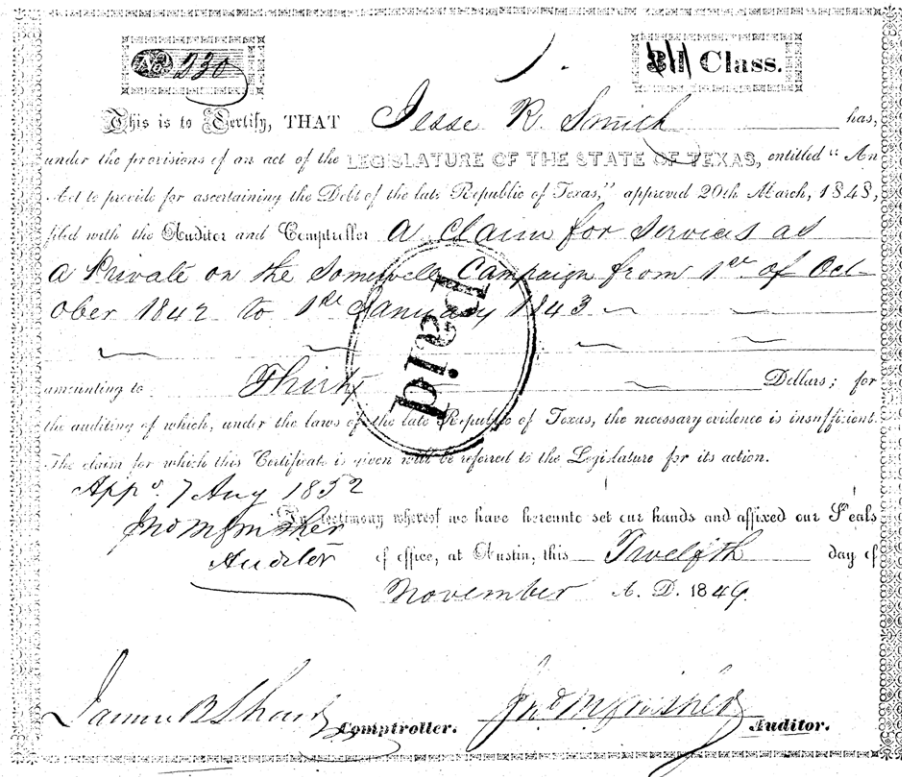 No 230
Class.
This is to Certify, THAT Jesse R. Smith has,
under the provisions of an act of the LEGISLATURE OF THE STATE OF TEXAS, entitled "An
Act to provide for ascertaining the Debt of the late Republic of Texas," approved 20th March, 1848,
filed with the Auditor and Comptroller a Claim for Services as
a Private on the Somervell Campaign from 1st of Oct-
ober 1842 to 1st January 1843
paid
amounting to Thirty Dollars; for
the auditing of which, under the laws of the late Republic of Texas, the necessary evidence is insufficient.
The claim for which this Certificate is given will be referred to the Legislature for its action.
Appd. 7 Aug 1852
Auditor
In testimony whereof we have hereunto set our hands and affixed our Seals
of office, at Austin, this Twelfth day of
November A. D. 1849.
James B Shaw Comptroller. Auditor.